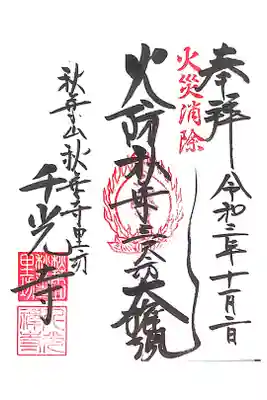 奉拝
令和二年十一月二日
火災消除
火防秋葉三尺坊大権現
秋葉山秋葉寺里坊
千光寺